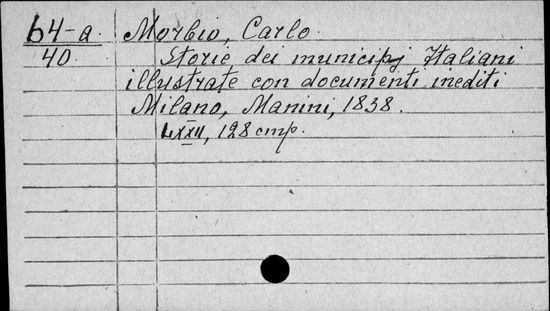 64-a. Morbio, Carlo.
40. Storie dei municipj Italiani
illustrate con documenti inediti
Milano, Manini, 1838.
LXXII, 128 cmp.